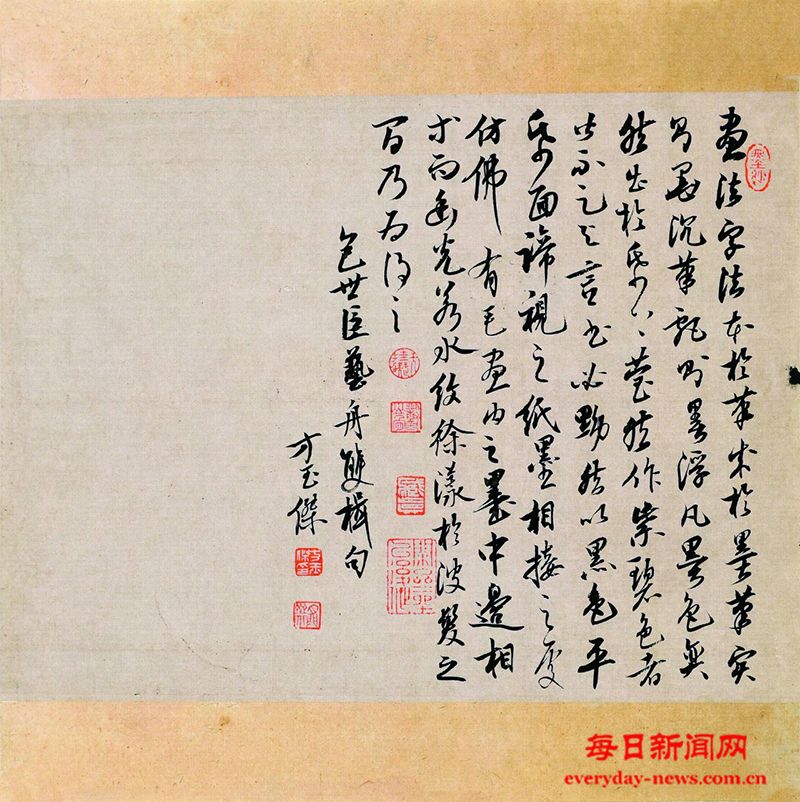 畫法字法本於筆成於墨筆实
則墨沉筆飄則墨浮凡墨色奕
然出於帋上瑩然作紫碧色者
皆不足与言書必黝然以黑色平
帋面諦視之紙墨相接之處
仿佛有毛畫內之墨中邊相
等而幽光若水紋徐漾於波發之
间乃为得之
包世臣藝舟雙楫句
方玉傑
每日新闻网
everyday-news.com.cn